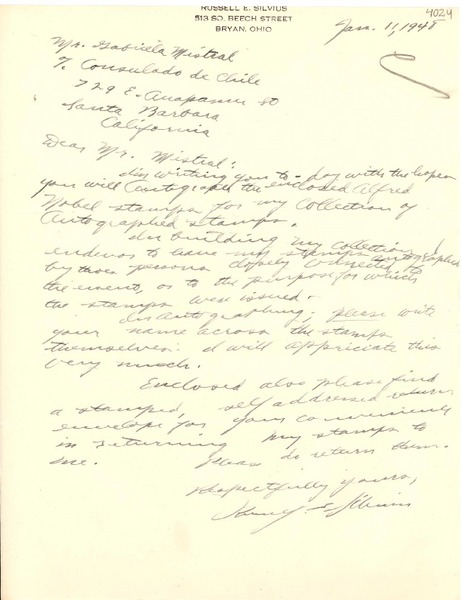 RUSSELL E. SILVIUS
513 SO. BEECH STREET
BRYAN, OHIO
4024
Jan. 11, 1948
Mr. Gabriela Mistral
% Consulado de Chile
729 E. Anapamu St
Santa Barbara
California
Dear Mr. Mistral:
I'm writing you to-day with the hopes
you will autograph the enclosed Alfred
Nobel stamps for my collection of
Autographed stamps.
In building my collection, I
endevor to have my stamps autographed
by those persons closely connected to
the event, or to the purpose for which
the stamps were issued.
In autographing, please write
your name across the stamps
themselves. I will appriciate this
very much.
Enclosed also please find
a stamped, self addressed return
envelope for your convenience
in returning my stamps to
me. Please do return them.
Respectfully yours,